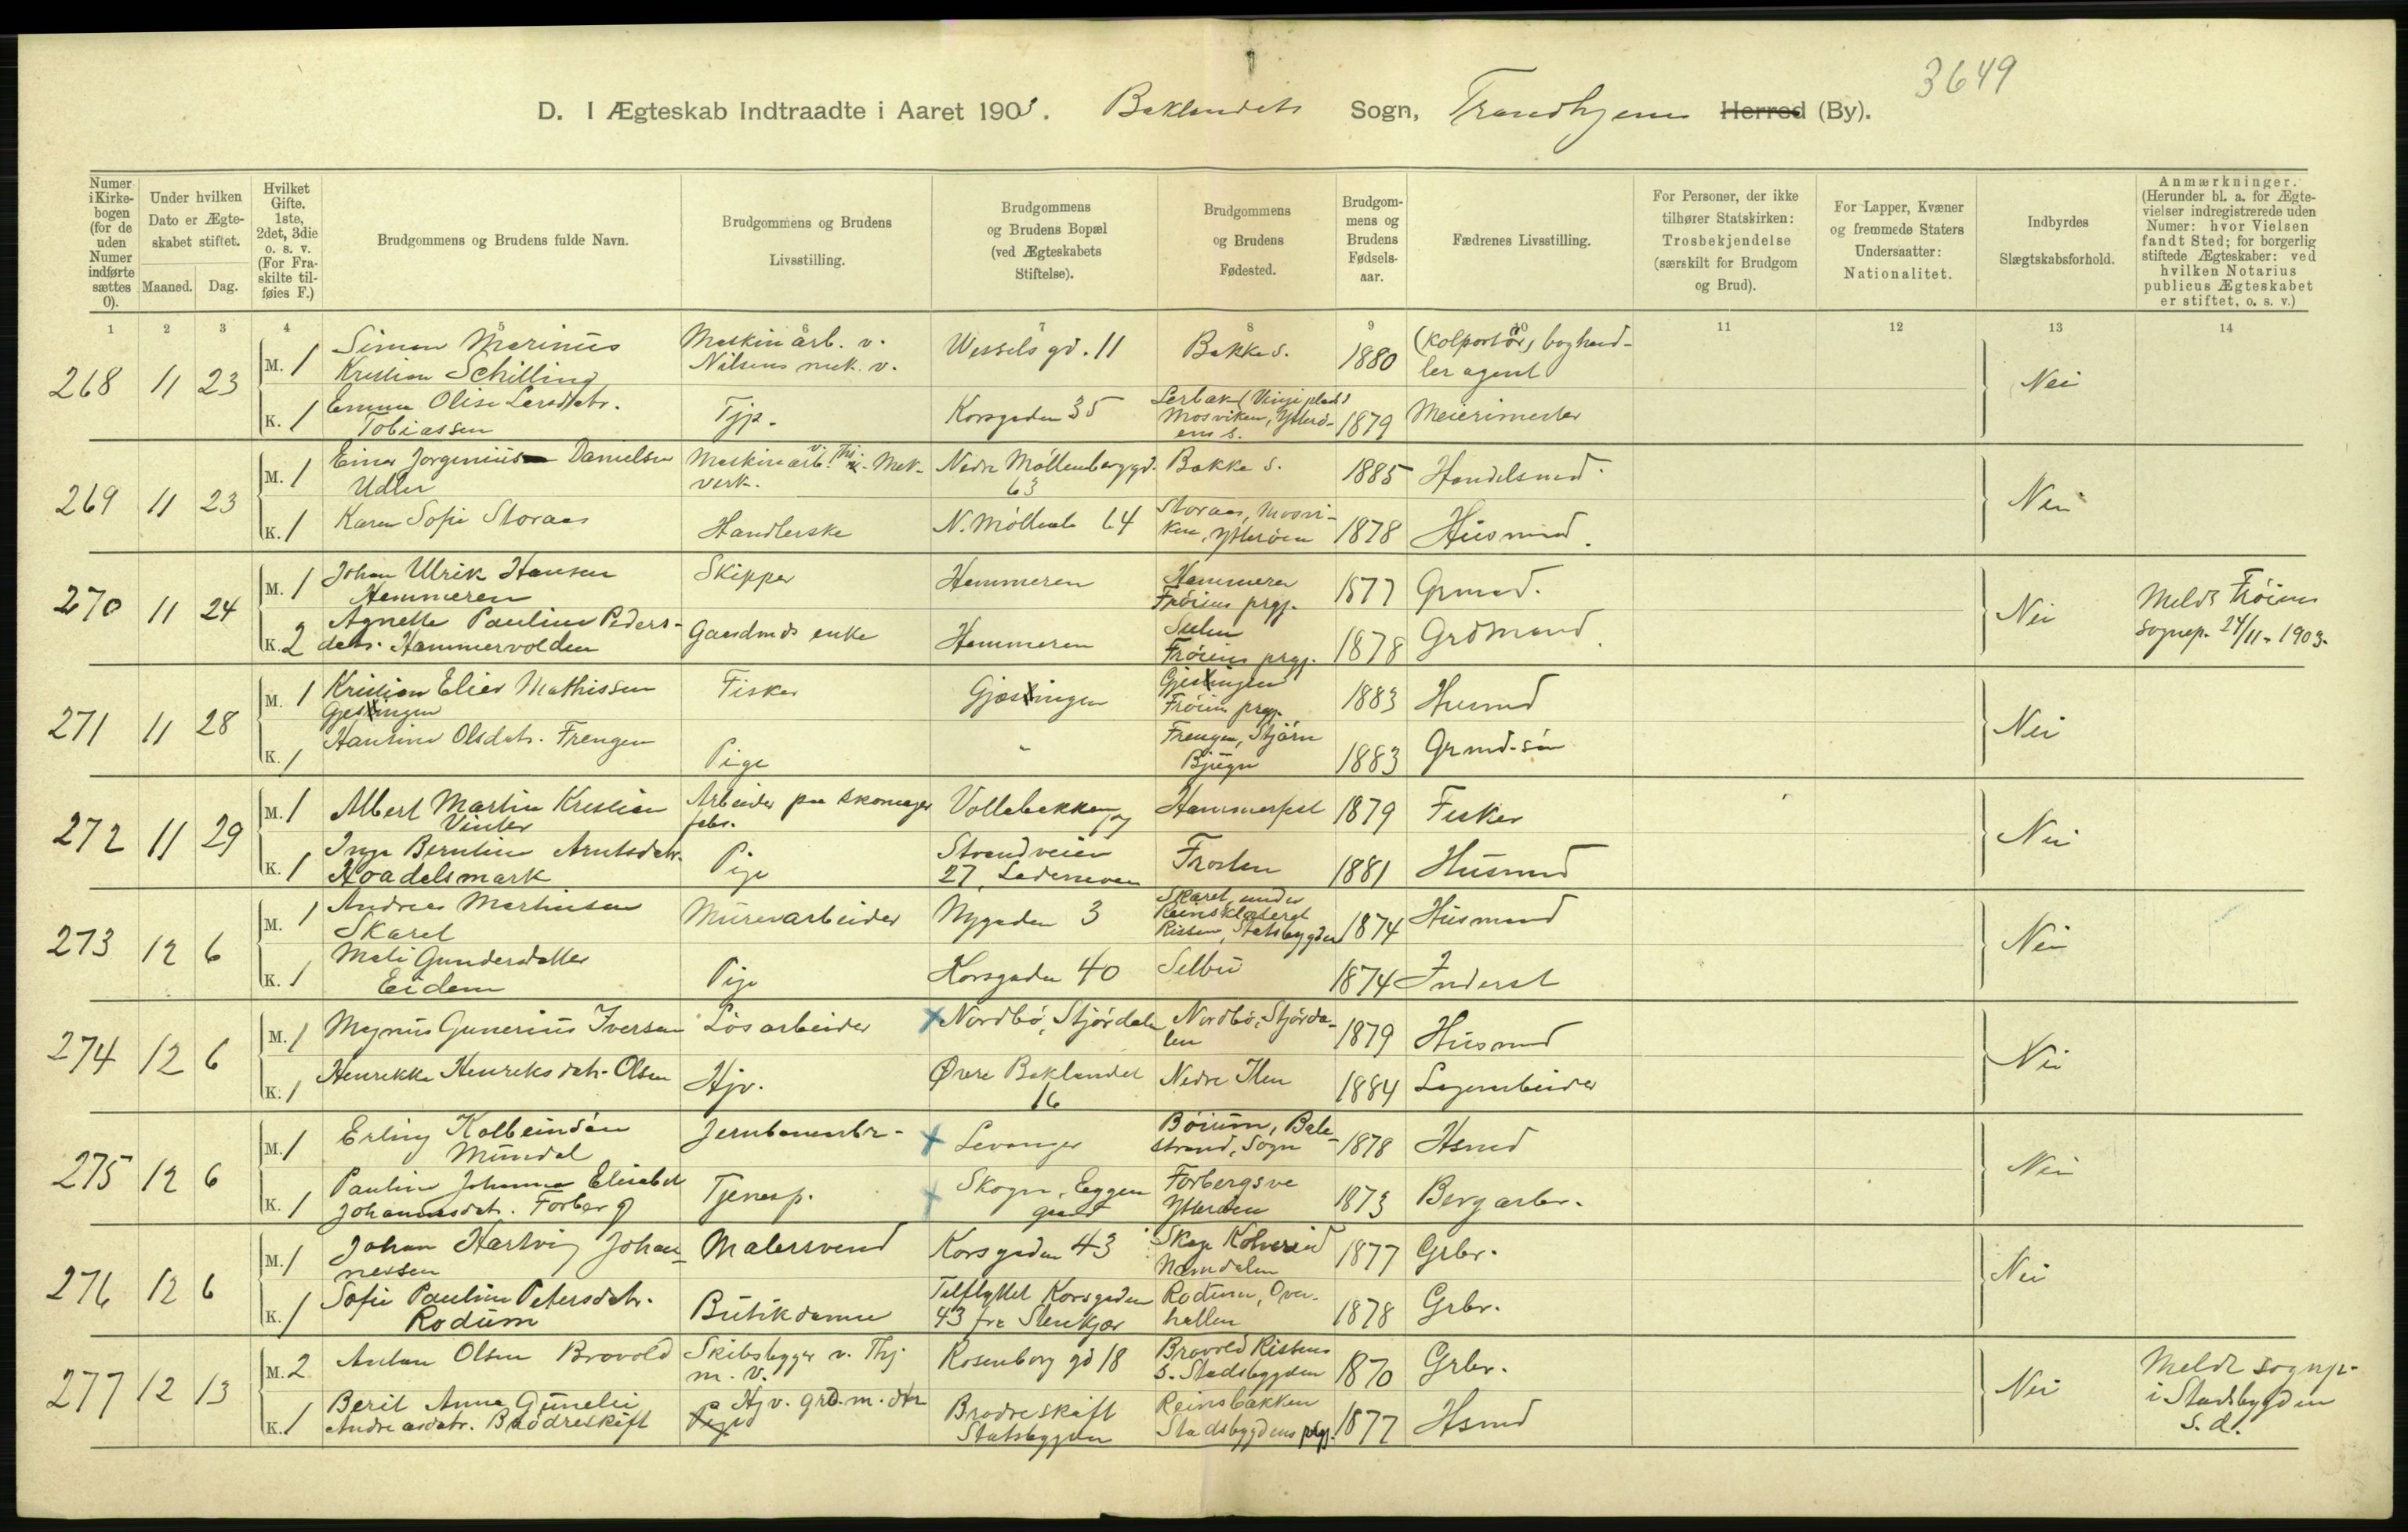 3649
D. I Ægteskab Indtraadte i Aaret 1903. Baklandets Sogn, Trondhjem Herred (By).
Numer i Kirkebogen (for de uden Numer indførte sættes 0).
Under hvilken Dato er Ægteskabet stiftet.
Maaned. Dag.
Hvilket Gifte. 1ste, 2det, 3die o. s. v. (For Fraskilte tilføies F.)
Brudgommens og Brudens fulde Navn.
Brudgommens og Brudens Livsstilling.
Brudgommens og Brudens Bopæl (ved Ægteskabets Stiftelse).
Brudgommens og Brudens Fødested.
Brudgommens og Brudens Fødselsaar.
Fædrenes Livsstilling.
For Personer, der ikke tilhører Statskirken: Trosbekjendelse (særskilt for Brudgom og Brud).
For Lapper, Kvæner og fremmede Staters Undersaatter: Nationalitet.
Indbyrdes Slægtskabsforhold.
Anmærkninger. (Herunder bl. a. for Ægtevielser indregistrerede uden Numer: hvor Vielsen fandt Sted; for borgerlig stiftede Ægteskaber: ved hvilken Notarius publicus Ægteskabet er stiftet, o. s. v.)
1 2 3 4 5 6 7 8 9 10 11 12 13 14
268 11 23 M. 1 Simon Marinus Kristian Schilling Maskinarb. v. Nilsens mek. v. Wessels gd. 11 Bakke s. 1880 (Kolportör, boghandler agent Nei
K. 1 Emma Olise Larsdatr. Tobiassen Tjp. Korsgaden 35 Lerbak (Vinjeplads) Mosviken, Ytteröens s. 1879 Meierimester
269 11 23 M. 1 Einar Jorginius Danielsen Udler Maskinarb. v. Thj. Mek. verk. Nedre Möllenberggd. 63 Bakke s. 1885 Handelsmd. Nei
K. 1 Karen Sofie Storaas Handlerske N. Möllenb 64 Storaas, Mosviken, Ytteröen 1878 Husmand.
270 11 24 M. 1 Johan Ulrik Hansen Hammeren Skipper Hammeren Hammeren Fröiens prgj. 1877 Grmd. Nei Meldt Fröiens sognep. 24/11-1903.
K. 2 Agnette Pauline Pedersdatr. Hammervolden Gaardmds enke Hammeren Sulen Fröiens prgj. 1878 Grdmand.
271 11 28 M. 1 Kristian Elier Mathissen Gjessingen Fisker Gjæssingen Gjessingen Fröiens prgj. 1883 Husmd Nei
K. 1 Hansine Olsdatr. Frengen Pige - Frengen, Stjörn Bjugn 1883 Grmd. sön
272 11 29 M. 1 Albert Martin Kristian Vinter Arbeider paa skomagerfabr. Vollabakken 17 Hammerfest 1879 Fisker Nei
K. 1 Inga Berntine Arntsdatr. Hoadelsmark Pige Strandveien 27, Lademoen Frosten 1881 Husmd
273 12 6 M. 1 Andreas Martinsen Skaret Murerarbeider Nygaden 3 Skaret under Reinsklosteret Rissen, Statsbygden 1874 Husmand Nei
K. 1 Mali Gundersdatter Eidem Pige Korsgaden 40 Selbu 1874 Inderst
274 12 6 M. 1 Magnus Gunerius Iversen Lösarbeider Nordbö, Stjördalen Nordbö, Stjördalen 1879 Husmd Nei
K. 1 Henrikke Henriksdatr. Olsen Hjv. Övre Baklandet 16 Nedre Ilen 1884 Lagerarbeider
275 12 6 M. 1 Erling Kolbeinsön Mundal Jernbanearbr. Levanger Börum, Balestrand, Sogn 1878 Hsmd Nei
K. 1 Pauline Johanna Elisabet Johannesdatr. Forberg Tjenesp. Skogn, Eggen gaard Forbergsve Ytteröen 1873 Bergarbr.
276 12 6 M. 1 Johan Hartvig Johannessen Malersvend Korsgaden 43 Skage Kolvereid Namdalen 1877 Grbr. Nei
K. 1 Sofie Pauline Petersdatr. Rodum Butikdame Tilflyttet Korsgaden 43 fra Stenkjær Rodum, Overhallen 1878 Grbr.
277 12 13 M. 2 Anton Olsen Brovold Skibsbygger v. Thj. m. v. Rosenborg gd 18 Brovold Rissens s. Stadsbygden 1870 Grbr. Nei Meldt sognp. i Stadsbygden s. d.
K. 1 Berit Anna Gunelie Andreasdatr. Brödreskift Hjv. grd. m. dtr Brødreskift Statsbygden Reinsbakken Stadsbygdens prgj. 1877 Hsmd